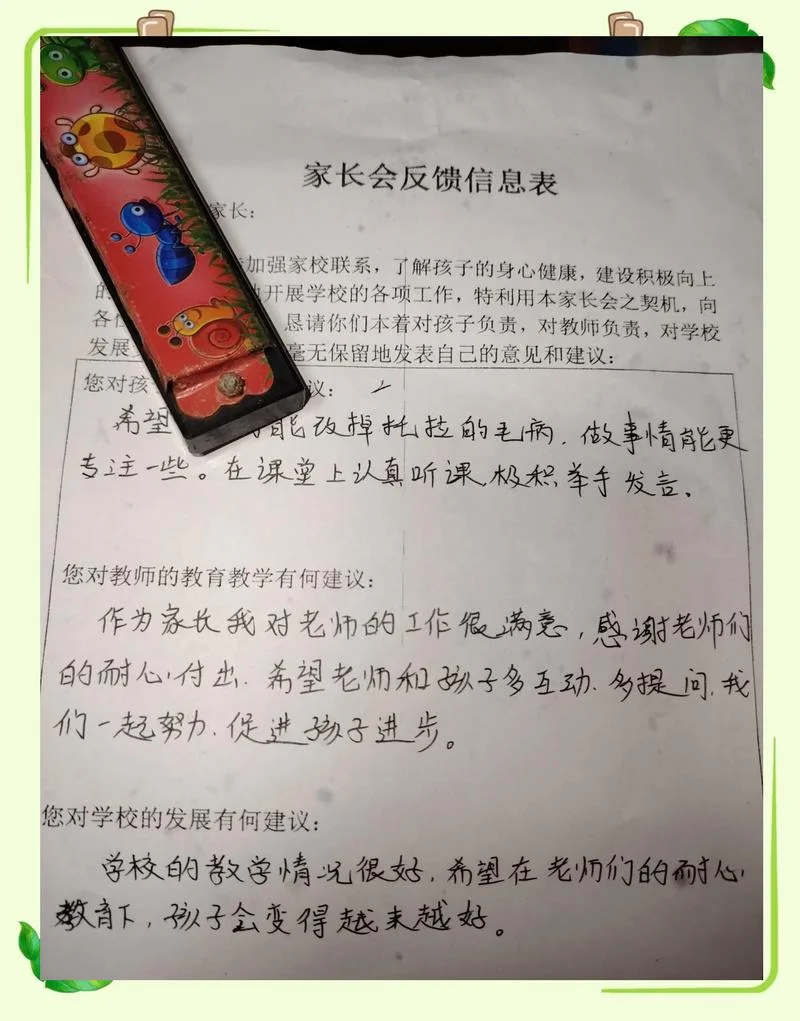 家长会反馈信息表
家长：
加强家校联系，了解孩子的身心健康，建设积极向上
的 开展学校的各项工作，特利用本家长会之契机，向
各位 恳请你们本着对孩子负责，对教师负责，对学校
发展 毫无保留地发表自己的意见和建议：
您对孩 议：
希望 能改掉托拉的毛病，做事情能更
专注一些。在课堂上认真听课，极积举手发言。
您对教师的教育教学有何建议：
作为家长我对老师的工作很满意，感谢老师们
的耐心付出．希望老师和孩子多互动．多提问，我
们一起努力．促进孩子进步。
您对学校的发展有何建议：
学校的教学情况很好，希望在老师们的耐心
教育下，孩子会变得越来越好。